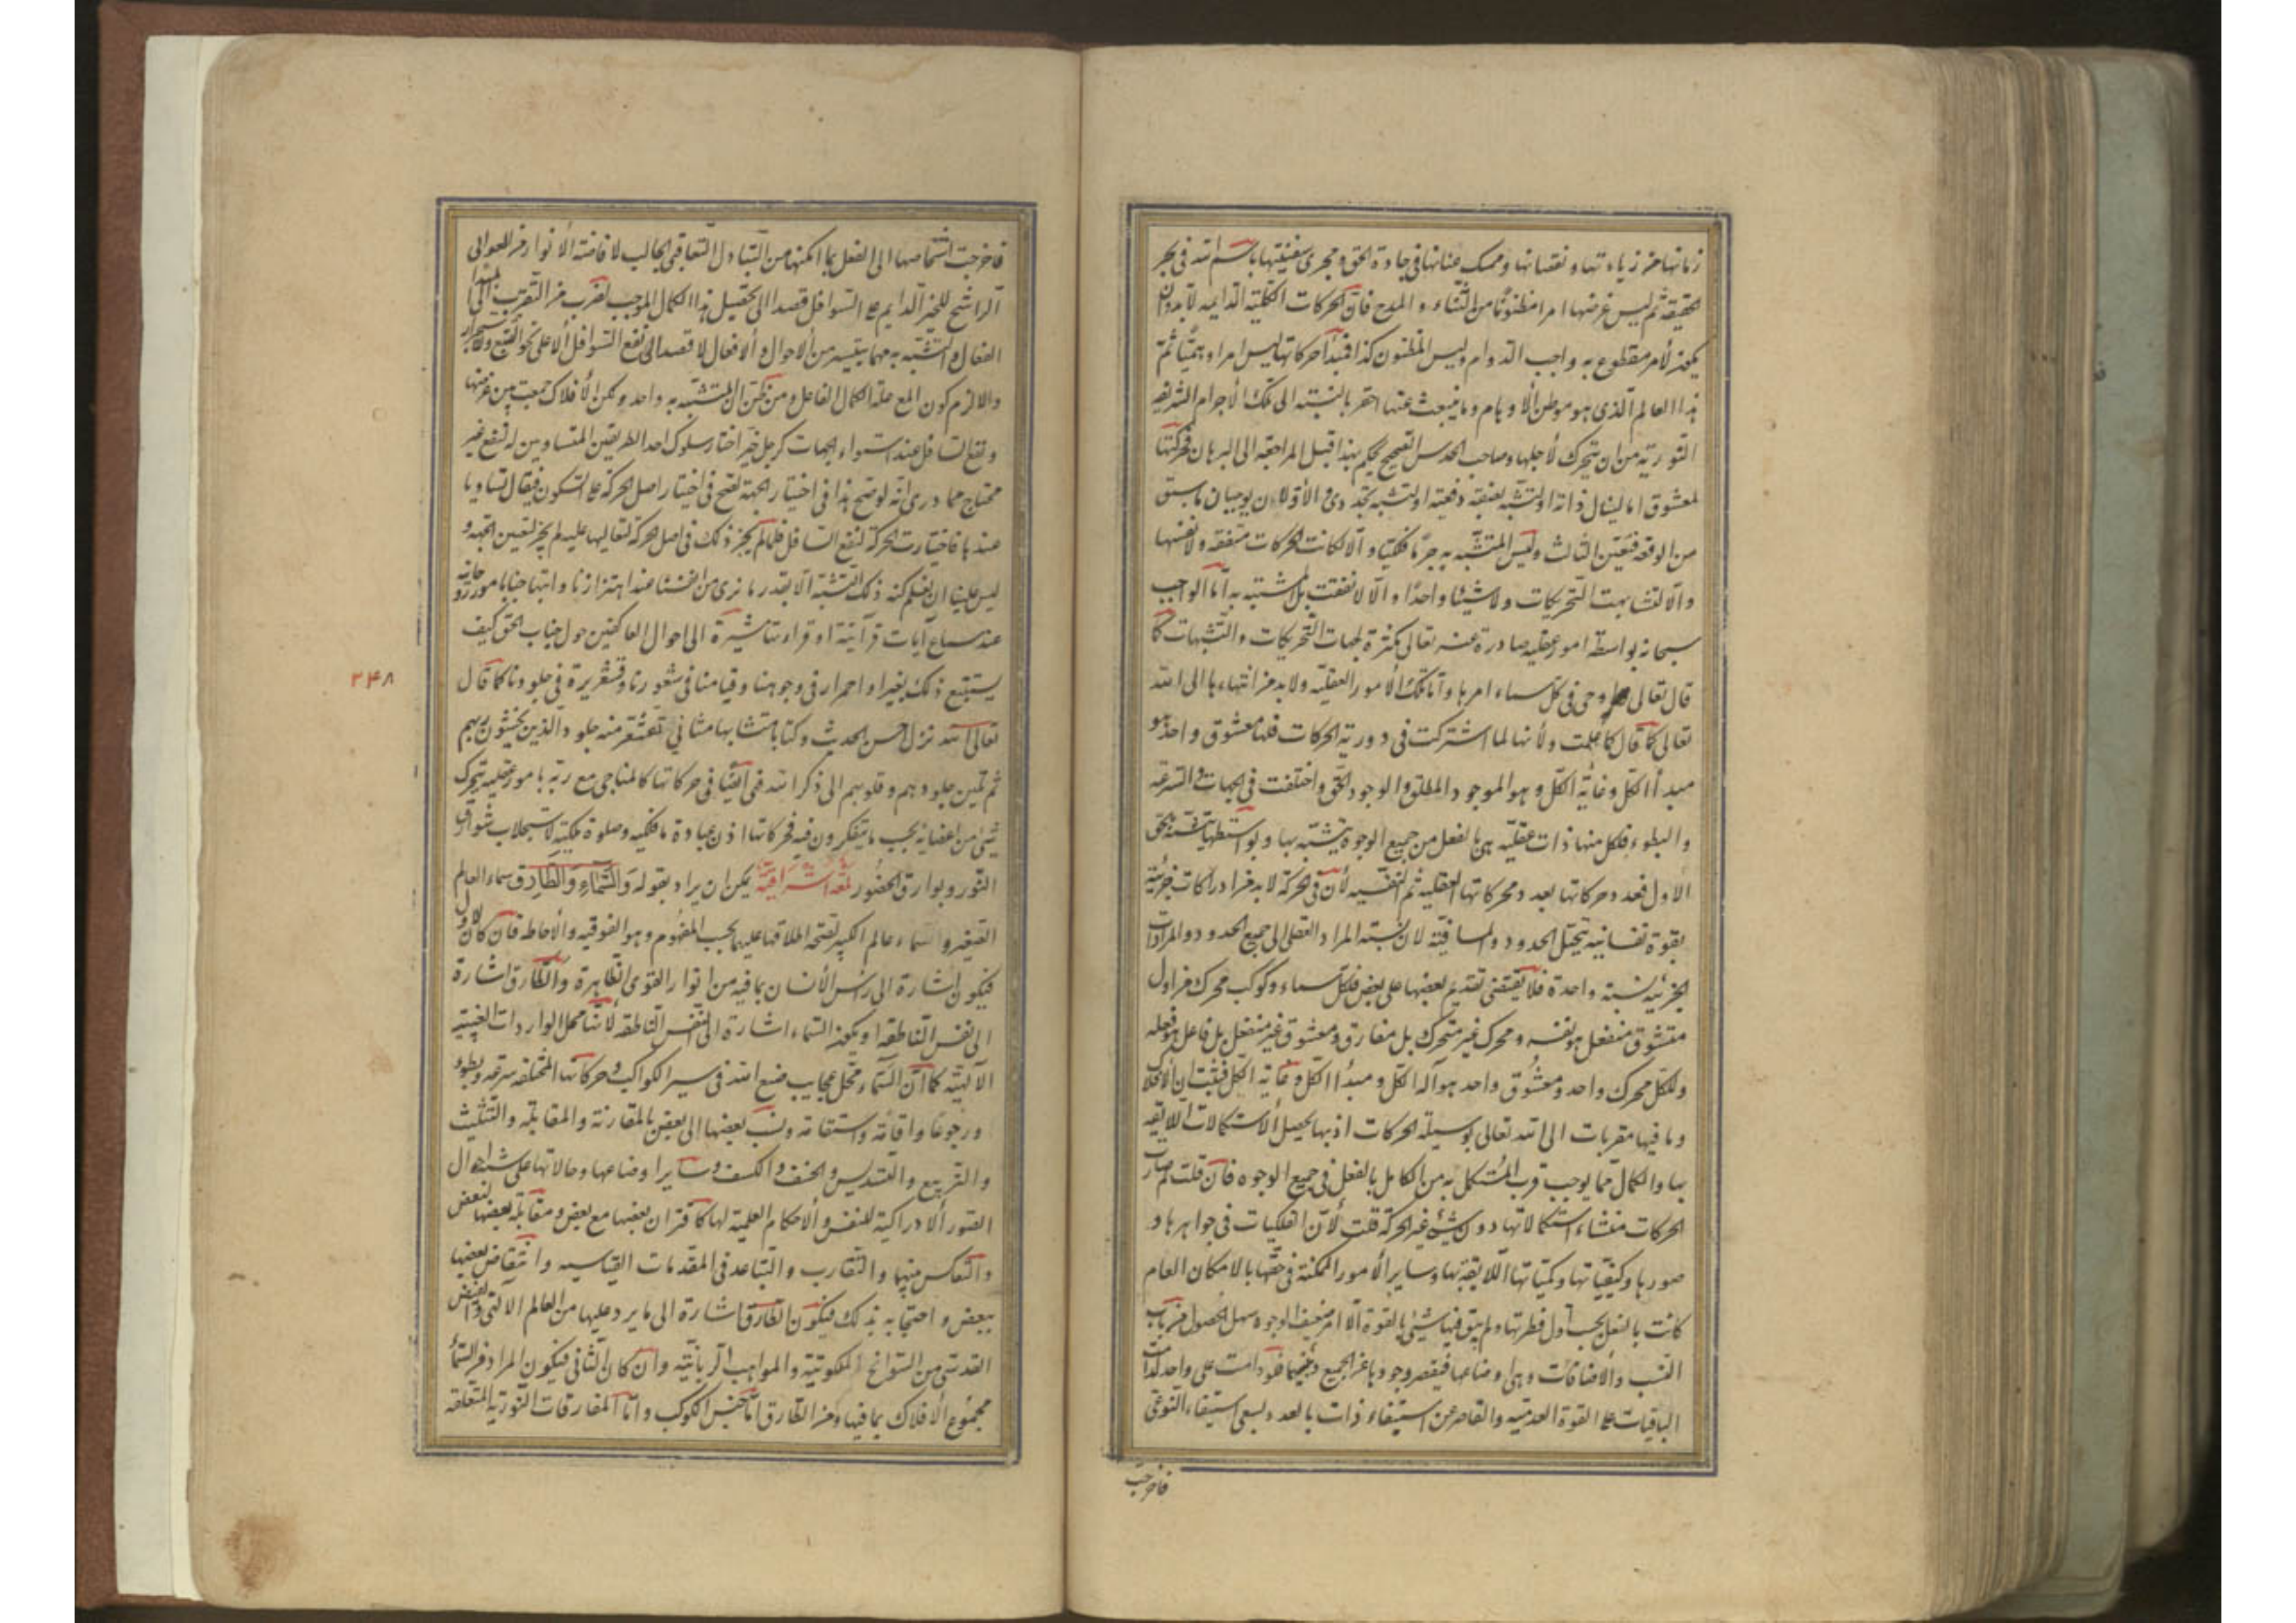 زمانها عن زیادتها و نقصانها و ممسک عنانها فی جادة الحق و مجری سفینتها باسم الله فی بحر
الحقیقة ثم لیس غرضها امرا مظنونا من الثناء و المدح فان الحرکات الکلیة الدایمه لابد و ان
یکون لأمر مقطوع به واجب الدوام و لیس المظنون کذا فمبدأ حرکاتها لیس امرا وهمیا ثم
هذا العالم الذی هو موطن الأوهام و ما ینبعث عنها احقر بالنسبة الی تلک الأجرام الشریفه
النوریة من ان یتحرک لأجلها و صاحب الحدس الصحیح یحکم بهذا قبل المراجعة الی البرهان فحرکتها
لمعشوق اما لینال ذاته او لتشبه بصفته دفعة او لتشبه تجددی و الأولان یوجبان ما سبق
من الوقفه فتعین الثالث و لیس المتشبه به جرما فلکیا و الا لکانت الحرکات متفقه و لا نفسها
و الا لتشابهت التحریکات و لا شیئا واحدا و الا لا تفقت بل المتشبه به اما الواجب
سبحانه بواسطة امور عقلیه صادرة عنه تعالی لکثرة جهات التحریکات و التشبهات کما
قال تعالی و اوحی فی کل سماء امرها و اما تلک الأمور العقلیه و لابد من انتهاءها الی الله
تعالی کما قال کما علمت و لأنها لما اشترکت فی دوریة الحرکات فلها معشوق واحد هو
مبدأ الکل و غایة الکل و هو الموجود المطلق و الوجود الحق و اختلفت فی الجهات و السرعه
و البطوء فلکل منها ذات عقلیه هی بالفعل من جمیع الوجوه یتشبه بها و بواسطتها یتشبه بالحق
الأول فعدد حرکاتها بعدد محرکاتها العقلیه ثم النفسیه لأن فی الحرکة لابد من ادراکات جزئیة
بقوة نفسانیه یتخیل الحدود و المسافیة لان نسبة المراد العقلی الی جمیع الحدود و المرادات
الجزئیه نسبة واحدة فلا یقتضی تقدیم بعضها علی بعض فلکل سماء و کوکب محرک مزاول
متشوق منفعل هو نفسه و محرک غیر متحرک بل مفارق و معشوق غیر منفعل بل فاعل هو عقله
و للکل محرک واحد و معشوق واحد هو آله الکل و مبدأ الکل و غایة الکل فثبت ان الأفلاک
و ما فیها مقربات الی الله تعالی بوسیلة الحرکات اذ بها یحصل الأستکمالات اللایقه
بها و الکمال مما یوجب قرب المستکمل به من الکامل بالفعل فی جمیع الوجوه فان قلت لم صارت
الحرکات منشاء استکمالاتها دون شیء غیر الحرکة قلت لأن الفلکیات فی جواهرها و
صورها و کیفیاتها و کمیاتها اللایقة بها و سایر الأمور الممکنة فی حقها بالامکان العام
کانت بالفعل بحسب اول فطرتها و لم یبق فیها شیء بالقوة الا امر ضعیف الوجود سهل الحصول من باب
النسب و الأضافات و هی اوضاعها فیقصر وجودها عن الجمیع دفعة فلو دامت علی واحد لدامت
الباقیات علی القوة العدمیة و القاصر عن استیفاء ذات بالعدد یسعی استیفاء النوعی
فاخرجت
فاخرجت اشخاصها الی الفعل بما امکنها من التبادل التعاقبی الجالب لافاضة الأنوار من العوالی
الراشح للخیر الدایم علی السوافل قصدا الی تحصیل هذا الکمال الموجب لضرب من التقرب الی المبدأ
الفعال و التشبه به مهما یتیسر من الأحوال و الأفعال لا قصدا الی نفع السوافل الا علی نحو التبع و الاستجرار
و الا لزم کون المعلول علة لکمال الفاعل و من ظن ان المتشبه به واحد و لکن الأفلاک جمعت بین غرضها
و نفع السافل عند استواء الجهات کرجل خیر اختار سلوک احد الطریقین المتساویین له لنفع غیر
محتاج مما دری انه لو صح هذا فی اختیار الجهة لصح فی اختیار اصل الحرکة علی السکون فیقال تساویا
عندها فاختارت الحرکة لنفع السافل فلما لم یجز ذلک فی اصل الحرکة لتعالیها علیه لم یجز لتعین الجهة و
لیس علینا ان نعلم کنه ذلک التشبه الا بقدر ما نری من انفسنا عند اهتزازنا و ابتهاجنا بامور روحانیه
عند سماع آیات قرآنیة او قراءتنا مشیرة الی احوال العاکفین حول جناب الحق کیف
یستتبع ذلک تغیرا و احمرار فی وجوهنا و قیاما فی شعورنا و قشعریرة فی جلودنا کما قال
تعالی الله نزل احسن الحدیث کتابا متشابها مثانی تقشعر منه جلود الذین یخشون ربهم
ثم تلین جلودهم و قلوبهم الی ذکر الله فهی ایضا فی حرکاتها کالمناجی مع ربه بامور عقلیه یتحرک
شیئ من اعضائه بحسب ما یتفکرون فیه فحرکاتها اذن عبادة ما فلکیه و صلوة ملکیة لاستجلاب شوارق
النور و بوارق الحضور لمعة اشراقیة یمکن ان یراد بقوله وَالسَّمَاءِ وَالطَّارِقِ سماء العالم
الصغیر و السماء عالم الکبیر لصحة اطلاقها علیهما بحسب المفهوم و هو الفوقیه و الأحاطه فان کان الأول
فیکون اشارة الی رأس الأنسان بما فیه من انوار القوی الظاهرة و الطارق اشارة
الی نفس الناطقه او یکون السماء اشارة الی النفس الناطقه لأنها محل الواردات الغیبیه
الآلهیة کما ان السماء محل عجایب صنع الله فی سیر الکواکب و حرکاتها المختلفه سرعة و بطوء
و رجوعا و اقامة و استقامة و نسب بعضها الی بعض بالمقارنة و المقابله و التثلیث
و التربیع و التسدیس و الخسف و الکسف و سایر اوضاعها و حالاتها علی شبه احوال
الصور الأدراکیة للنفس و الأحکام العلمیة لها کاقتران بعضها مع بعض و مقابلة بعضها لبعض
و التعاکس منهما و التقارب و التباعد فی المقدمات القیاسیه و انتقاض بعضها
ببعض و احتجابه بذلک فیکون الطارق اشارة الی ما یرد علیها من العالم الآلهی و الفیض
القدسی من السوانح الملکوتیة و المواهب الربانیه و ان کان الثانی فیکون المراد من السماء
مجموع الأفلاک بما فیها و من الطارق اما جنس الکوکب و اما المفارقات النوریة المتعلقه
۳۴۸